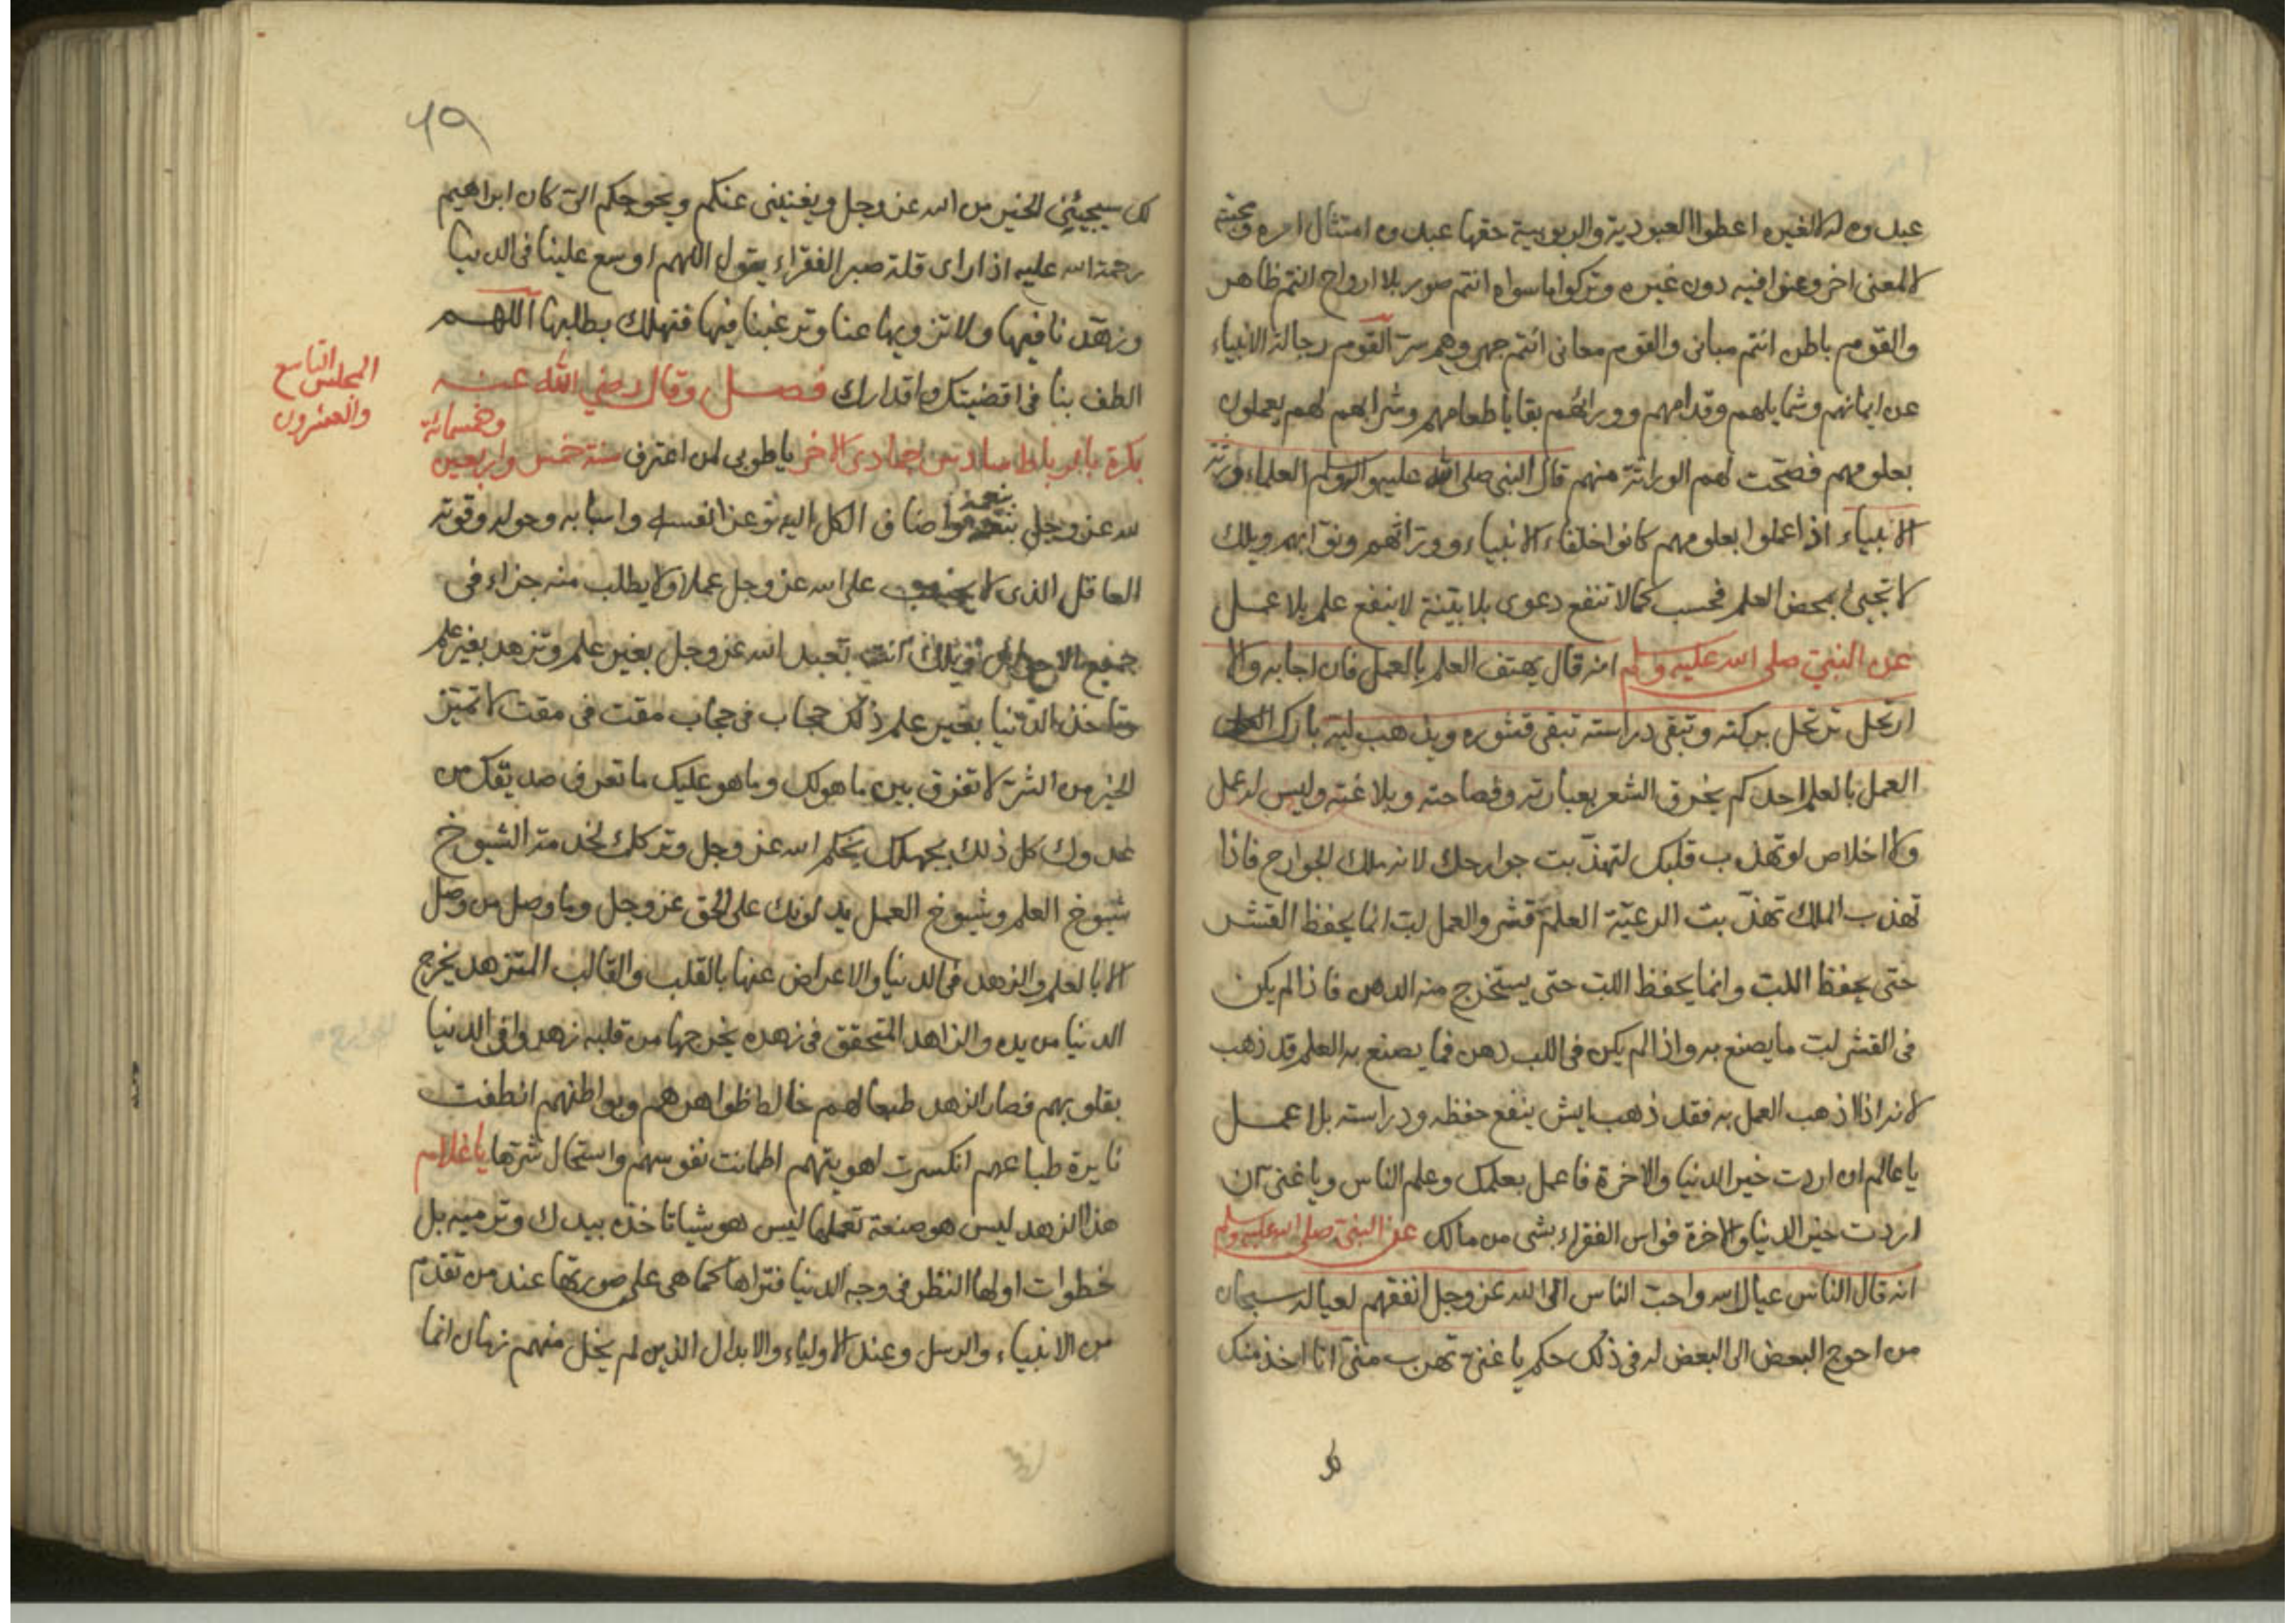 عبدوه له لا لغيره اعطوا العبودية والربوبية حقها عبدوه امتثال امره ومحبته
لا لمعنى اخر وعنوا فيه دون غيره وتركوا ما سواه انتم صور بلا ارواح انتم ظاهر
والقوم باطن انتم مبانى والقوم معانى انتم جهر وهم سر القوم رجالة الانبياء
عن ايمانهم وشمايلهم وقدامهم وورائهم بقايا طعامهم وشرابهم لهم يعملون
بعلومهم فصحت لهم الوراثة منهم قال النبى صلى الله عليه وآله وسلم العلماء ورثة
الانبياء اذا عملوا بعلومهم كانوا خلفاء الانبياء ووراثهم ونوابهم ويلك
لا تجئ بمحض العلم فحسب كما لا تنفع دعوى بلا بينة لا ينفع علم بلا عمل
عن النبي صلى الله عليه وسلم انه قال يهتف العلم بالعمل فان اجابه والا
ارتحل ترتحل بركته وتبقى دراسته تبقى قشوره ويذهب لبه يا تارك
العمل بالعلم احدكم يخرق الشعر بعبارته وفصاحته وبلاغته وليس له عمل
ولا اخلاص لو تهذب قلبك لتهذبت جوارحك لانه ملك الجوارح فاذا
تهذب الملك تهذبت الرعية العلم قشر والعمل لب انما يحفظ القشر
حتى يحفظ اللب وانما يحفظ اللب حتى يستخرج منه الدهن فاذا لم يكن
فى القشر لب ما يصنع به واذا لم يكن فى اللب دهن فما يصنع به العلم قد ذهب
لانه اذا ذهب العمل به فقد ذهب ايش ينفع حفظه ودراسته بلا عمل
يا عالم ان اردت خير الدنيا والاخرة فاعمل بعلمك وعلم الناس ويا غنى ان
اردت خير الدنيا والاخرة فواس الفقراء بشى من مالك عن النبي صلى الله عليه وسلم
انه قال الناس عيال الله واحب الناس الى الله عز وجل انفقهم لعياله سبحان
من احوج البعض الى البعض له فى ذلك حكم يا غنى تهرب منى انا اخذ منك
٦٩
لك سيجيئنى الخير من الله عز وجل ويغنينى عنكم ويحوجكم الى كان ابراهيم
رحمة الله عليه اذا راى قلة صبر الفقراء يقول اللهم اوسع علينا فى الدنيا
وزهدنا فيها ولا تزويها عنا وترغبنا فيها فتهلك بطلبها اللهم
الطف بنا فى اقضيتك واقدارك فصل وقال رضي الله عنه
المجلس التاسع
والعشرون
بكرة بالرباط سادس جمادى الاخر يا طوبى لمن اعترف سنة خمس واربعين
وخمسمائة
لله عز وجل بنعمه واضاف الكل اليه نوعز انفسه واسبابه وحوله وقوته
العاقل الذى لا على الله عز وجل عملا ولا يطلب منه جزاء فى
جميع الاحوال ويلك انت تعبد الله عز وجل بغير علم وتزهد بغير علم
وتاخذ الدنيا بغير علم ذلك حجاب فى حجاب مقت فى مقت لا تميز
الخير من الشر لا تفرق بين ما هو لك وما هو عليك ما تعرف صديقك من
عدوك كل ذلك بجهلك بحكم الله عز وجل وتركك لخدمة الشيوخ
شيوخ العلم وشيوخ العمل يدلونك على الحق عز وجل وما وصل من وصل
الا بالعلم والزهد فى الدنيا والاعراض عنها بالقلب والقالب المتزهد يخرج
الدنيا من يده والزاهد المتحقق فى زهده يخرجها من قلبه زهدوا فى الدنيا
بقلوبهم فصار الزهد طبعا لهم خالط ظواهرهم وبواطنهم انطفت
نايرة طباعهم انكسرت اهويتهم اطمانت نفوسهم واستحال شرها يا غلام
هذا الزهد ليس هو صنعة تعملها ليس هو شيا تاخذه بيدك وترميه بل
خطوات اولها النظر فى وجه الدنيا فتراها كما هى على صورتها عند من تقدم
من الانبياء والرسل وعند الاولياء والابدال الذين لم يخل منهم زمان انما